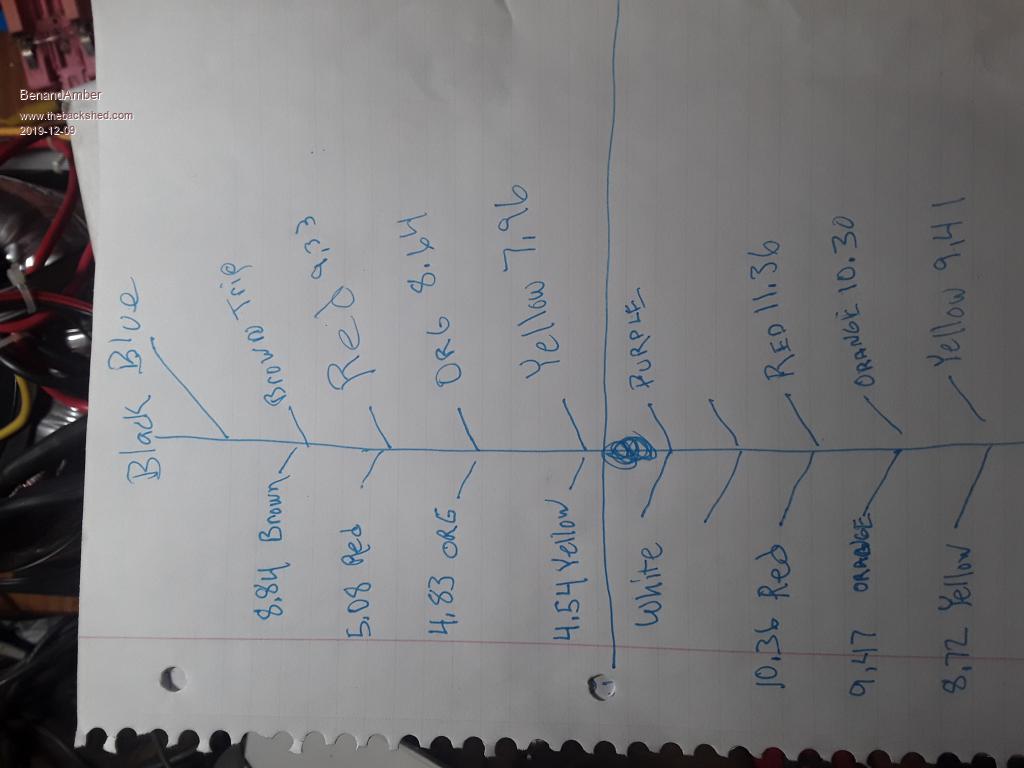 BenandAmber
www.thebackshed.com
2019-12-09
Black Blue
8.84 Brown
Brown Trip
5.08 Red
Red 9.33
4.83 ORG
ORG 8.64
4.54 Yellow
Yellow 7.96
White
PURPLE
10.36 Red
RED 11.36
9.47 ORANGE
ORANGE 10.30
8.72 Yellow
Yellow 9.41